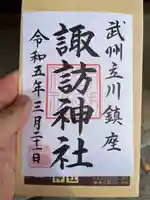 武州立川鎮座
諏訪神社
令和五年三月二十一日